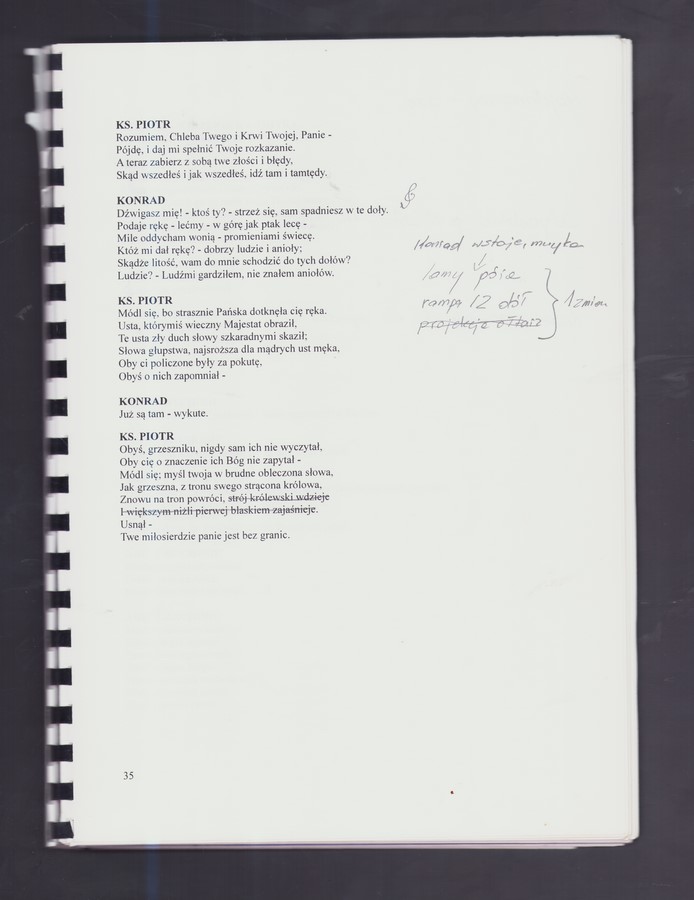 KS. PIOTR
Rozumiem, Chleba Twego i Krwi Twojej, Panie -
Pójdę, i daj mi spełnić Twoje rozkazanie.
A teraz zabierz z sobą twe złości i błędy,
Skąd wszedłeś i jak wszedłeś, idź tam i tamtędy.
KONRAD
Dźwigasz mię! - ktoś ty? - strzeż się, sam spadniesz w te doły.
Podaje rękę - lećmy - w górę jak ptak lecę -
Mile oddycham wonią - promieniami świecę.
Któż mi dał rękę? - dobrzy ludzie i anioły;
Skądże litość, wam do mnie schodzić do tych dołów?
Ludzie? - Ludźmi gardziłem, nie znałem aniołów.
Konrad wstaje, muzyka
lamy
rampa 12 dół
projekcje ołtarz
1 zmiana
KS. PIOTR
Módl się, bo strasznie Pańska dotknęła cię ręka.
Usta, którymiś wieczny Majestat obraził,
Te usta zły duch słowy szkaradnymi skaził;
Słowa głupstwa, najsroższa dla mądrych ust męka,
Oby ci policzone były za pokutę,
Obyś o nich zapomniał -
KONRAD
Już są tam - wykute.
KS. PIOTR
Obyś, grzeszniku, nigdy sam ich nie wyczytał,
Oby cię o znaczenie ich Bóg nie zapytał -
Módl się; myśl twoja w brudne obleczona słowa,
Jak grzeszna, z tronu swego strącona królowa,
Znowu na tron powróci, strój królewski wdzieje
I większym niźli pierwej blaskiem zajaśnieje.
Usnął -
Twe miłosierdzie panie jest bez granic.
35